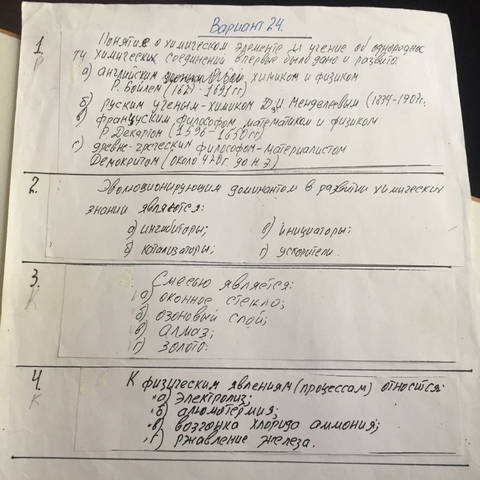 Вариант 24.
1. Понятие о химическом элементе и учение об однороднос
ти химических соединений впервые было дано и развито:
Р
а) английским химиком и физиком
Р. Бойлем (1627-1691гг)
б) руским ученым-химиком Д.И Менделеевым (1834-1907г;
в) французским философом, математиком и физиком
Р. Декартом (1596-1650гг)
г) древне-греческим философом-материалистом
Демокритом (около 470г. до н.э.)
2. Эволюционирующим доминантом в развитии химических
знаний являются:
а) ингибиторы; в) инициаторы;
б) катализаторы; г) ускорители.
3. Смесью является:
К
а) оконное стекло;
б) озоновый слой;
в) алмаз;
г) золото.
4. К физическим явлениям (процессам) относится:
К
а) электролиз;
б) алюмотермия;
в) возгонка хлорида аммония;
г) ржавление железа.